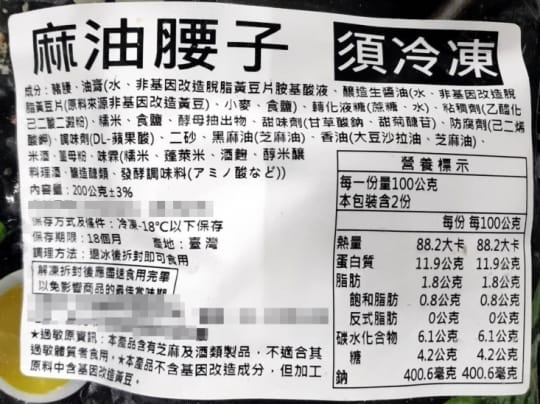 麻油腰子 須冷凍
成分：豬腰、油膏(水、非基因改造脫脂黃豆片胺基酸液、釀造生醬油(水、非基因改造脫
脂黃豆片(原料來源非基因改造黃豆)、小麥、食鹽)、轉化液糖(蔗糖、水)、粘稠劑(乙醯化
己二酸二澱粉)、糯米、食鹽、酵母抽出物、甜味劑(甘草酸鈉、甜菊醣苷)、防腐劑(己二烯
酸鉀)、調味劑(DL-蘋果酸)、二砂、黑麻油(芝麻油)、香油(大豆沙拉油、芝麻油)、
米酒、薑母粉、味霖(糯米、蓬萊米、酒麴、醇米釀
料理酒、釀造醣類、發酵調味料(アミノ酸など))
內容量：200公克±3%
保存方式及條件：冷凍-18℃以下保存
保存期限：18個月 產地：臺灣
調理方法：退冰後拆封即可食用
解凍拆封後應儘速食用完畢
以免影響商品的最佳賞味期
★過敏原資訊：本產品含有芝麻及酒類製品，不適合其
過敏體質者食用。★本產品不含基因改造成分，但加工
原料中含基因改造黃豆。
營養標示
每一份量100公克
本包裝含2份
每份 每100公克
熱量 88.2大卡 88.2大卡
蛋白質 11.9公克 11.9公克
脂肪 1.8公克 1.8公克
飽和脂肪 0.8公克 0.8公克
反式脂肪 0公克 0公克
碳水化合物 6.1公克 6.1公克
糖 4.2公克 4.2公克
鈉 400.6毫克 400.6毫克